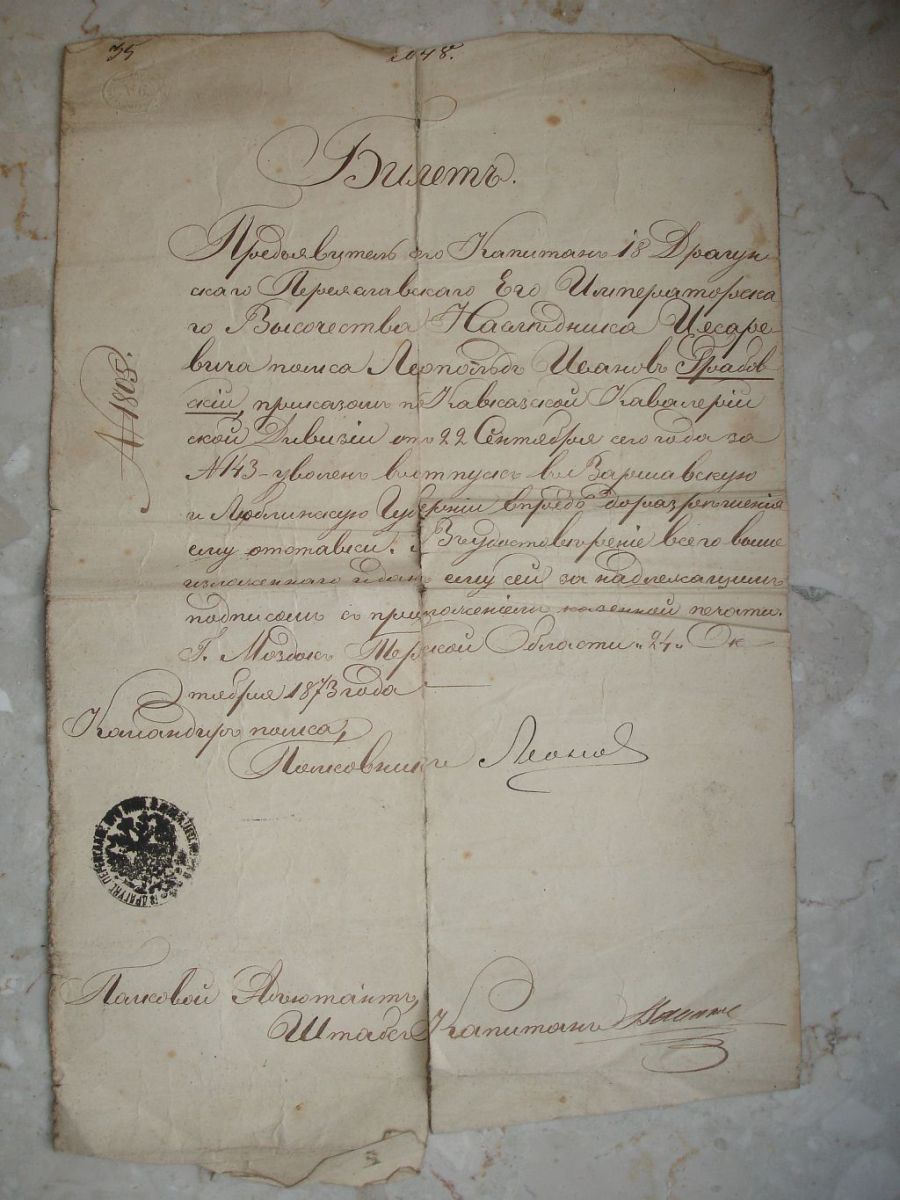 35
1048.
Билетъ.
Предъявитель сего Капитанъ 18 Драгун-
скаго Переяславскаго Его Императорска-
го Высочества Наслѣдника Цесаре-
вича полка Леопольдъ Ивановъ Грабов-
скій, приказомъ по Кавказской Кавалерій
ской Дивизіи отъ 22 Сентября сего года за
№ 143 уволенъ въ отпускъ въ Варшавскую
и Люблинскую Губерніи впредь до разрѣшенія
ему отставки. Въ удостовѣреніе всего выше
изложеннаго данъ ему сей за надлежащимъ
подписомъ съ приложеніемъ казенной печати.
Г. Моздокъ Терской Области „24„ Ок-
тября 1873 года
№ 1805.
Командиръ полка,
Полковникъ Леонов
Полковой Адъютантъ,
Штабсъ Капитанъ